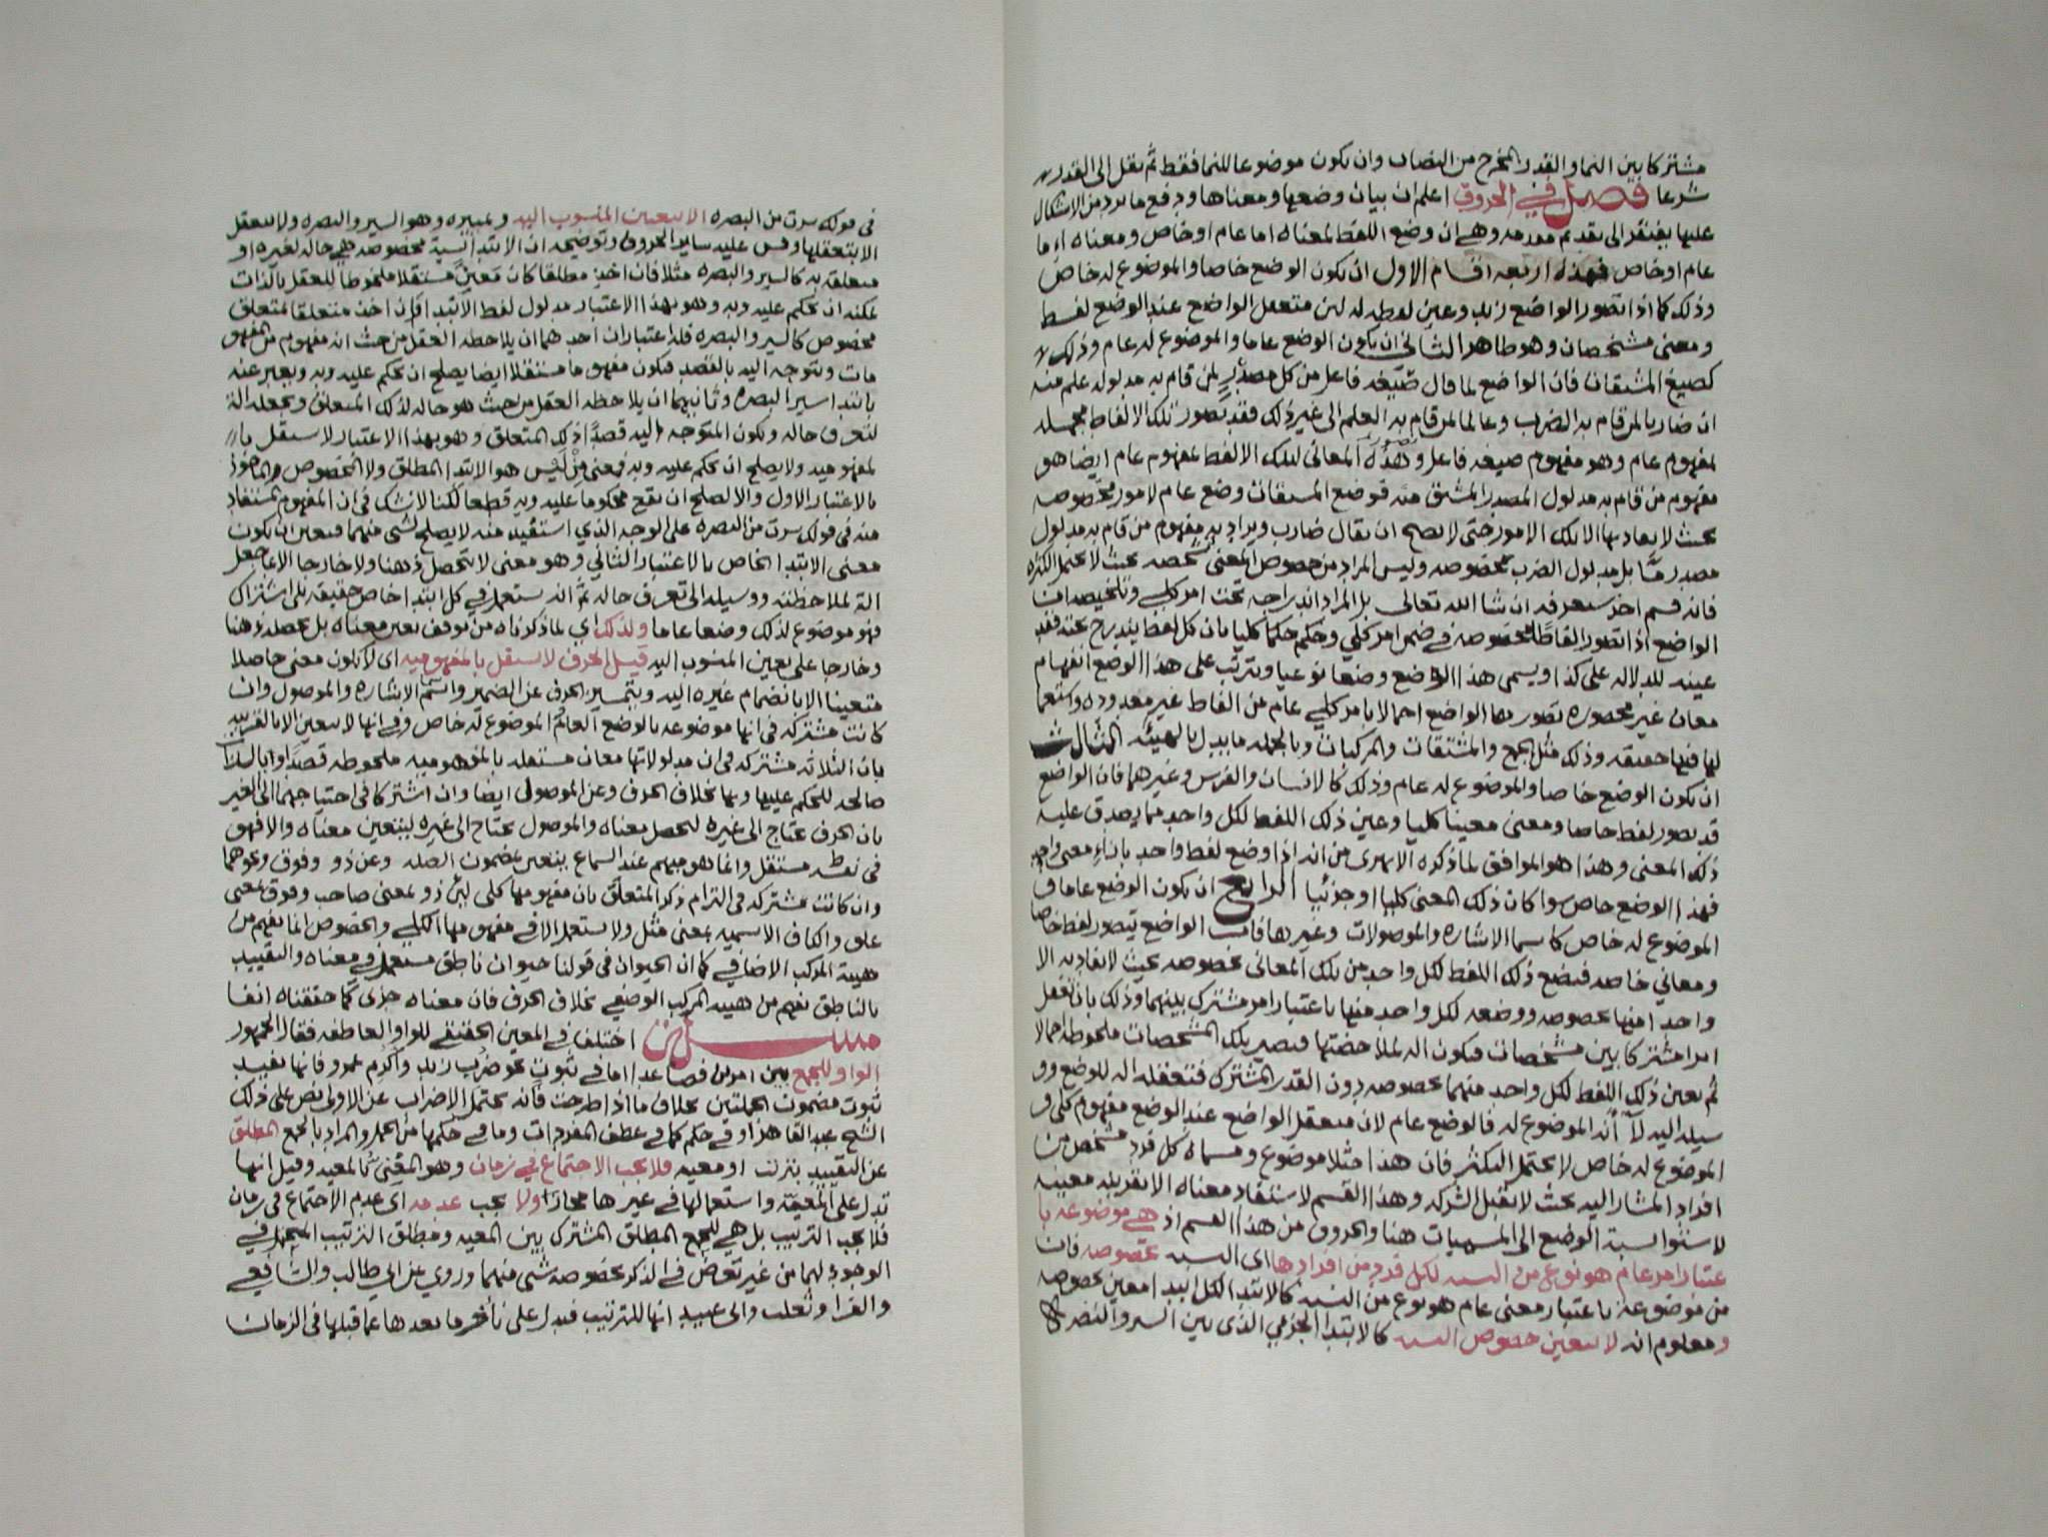 مشتركا بين النما والقدر المخرج من النصاب وان يكون موضوعا للنما فقط ثم نقل الى القدر
شرعا فصل في الحروف اعلم ان بيان وضعها ومعناها ودفع ما يرد من الاشكال
عليها يفتقر الى تقديم مقدمه وهي ان وضع اللفظ لمعناه اما عام او خاص ومعناه اما
عام او خاص فهذه اربعه اقسام الاول ان يكون الوضع خاصا والموضوع له خاص
وذلك كما اذا تصور الواضع زيد وعين لفظه له لان متعقل الواضع عند الوضع لفظ
ومعنى مشخصان وهو ظاهر الثاني ان يكون الوضع عاما والموضوع له عام وذلك
كصيغ المشتقات فان الواضع لما قال صيغه فاعل من كل مصدر لمن قام به مدلوله علم منه
ان ضاربا لمن قام به الضرب وعالما لمن قام به العلم الى غير ذلك فقد تصور تلك الالفاظ مجمله
لمفهوم عام وهو مفهوم صيغه فاعل وهذه المعاني لتلك الالفظ لمفهوم عام ايضا هو
مفهوم من قام به مدلول المصدر المشتق منه فوضع المشتقات وضع عام لامور مخصوصه
بحيث لا يفاد بها الا تلك الامور حتى لا يصح ان يقال ضارب ويراد به مفهوم من قام به مدلول
مصدر ما بل مدلول الضرب بخصوصه وليس المراد من خصوص المعنى تشخصه بحيث لا يحتمل الكثره
فانه قسم اخر ستعرفه ان شا الله تعالى بل المراد اندراجه تحت امر كلي وتلخيصه ان
الواضع اذا تصور الفاظا مخصوصه في ضمن امر كلي وحكم حكما كليا بان كل لفظ يندرج تحته فقد
عينه للدلاله على كذا ويسمى هذا الوضع وضعا نوعيا ويترتب على هذا الوضع انفهام
معان غير محصوره تصورها الواضع اجمالا بامر كلي عام من الفاظ غير معدوده واستعما
لها فيها حقيقه وذلك مثل الجمع والمشتقات والمركبات وبالجمله ما يدل بالهيئه الثالث
ان يكون الوضع خاصا والموضوع له عام وذلك كالانسان والفرس وغيرهما فان الواضع
قد تصور لفظ خاصا ومعنى معينا كليا وعين ذلك اللفظ لكل واحد مما يصدق عليه
ذلك المعنى وهذا هو الموافق لما ذكره الابهرى من انه اذا وضع لفظ واحد بازاء معنى واحد
فهذا الوضع خاص سوا كان ذلك المعنى كليا او جزئيا الرابع ان يكون الوضع عاما و
الموضوع له خاص كاسما الاشاره والموصولات وغيرها فان الواضع يتصور لفظ خاصا
ومعاني خاصه فيضع ذلك اللفظ لكل واحد من تلك المعاني بخصوصه بحيث لا يفاد به الا
واحدا منها بخصوصه ووضعه لكل واحد منها باعتبار امر مشترك بينهما وذلك بان تعقل
امرا مشتركا بين مشخصات فيكون اله لملاحضتها فيصير تلك المشخصات ملحوظه اجمالا
ثم يعين ذلك اللفظ لكل واحد منهما بخصوصه دون القدر المشترك فتعقله اله للوضع وو
سيله اليه لا انه الموضوع له فالوضع عام لان متعقل الواضع عند الوضع مفهوم كلى و
الموضوع له خاص لا يحتمل التكثر فان هذا مثلا موضوع ومسماه كل فرد مشخص من
افراد المشار اليه بحيث لا تقبل الشركه وهذا القسم لا يستفاد معناه الا بقرينه معينه
لاستوا نسبة الوضع الى المسميات هنا والحروف من هذا القسم اذ هي موضوعه با
عتبار امر عام هو نوع من النسبه لكل فرد من افرادها اى النسبه بخصوصه فان
من موضوعة باعتبار معنى عام هو نوع من النسبه كالابتدا لكل ابتدا معين بخصوصه
ومعلوم انه لا يتعين خصوص النسبه كالابتدا الجزءي الذي بين السير والبصره
في قولك سرت من البصره الا بتعين المنسوب اليه وتميزه وهو السير والبصره ولا يتعقل
الا بتعقلها وقس عليه ساير الحروف وتوضيحه ان الابتدا نسبة مخصوصه هي حاله لغيره او
متعلقه به كالسير والبصره مثلا فان اخذ مطلقا كان معنى مستقلا ملحوظا للعقل بالذات
يمكنه ان يحكم عليه وبه وهو بهذا الاعتبار مدلول لفظ الابتدا فان اخذ متعلقا بمتعلق
مخصوص كالسير والبصره فله اعتباران احدهما ان يلاحظه العقل من حيث انه مفهوم من المفهو
مات ويتوجه اليه بالقصد فيكون مفهوما مستقلا ايضا يصلح ان يحكم عليه وبه ويعبر عنه
بابتدا سير البصره وثانيهما ان يلاحظه العقل من حيث هو حاله لذلك المتعلق ويجعله الة
لتعرف حاله ويكون المتوجه اليه قصدا ذلك المتعلق وهو بهذا الاعتبار لا يستقل با
لمفهوميه ولا يصلح ان يحكم عليه وبه فمعنى من ليس هو الابتدا المطلق ولا المخصوص والماخوذ
بالاعتبار الاول والا لصلح ان يقع محكوما عليه وبه قطعا لكنا لا نشك في ان المفهوم المستفاد
منه في قولك سرت من البصره على الوجه الذي استفيد منه لا يصلح لشى منهما فتعين ان يكون
معنى الابتدا الخاص بالاعتبار الثاني وهو معنى لا يتحصل ذهنا ولا خارجا الا بما جعل
الة لملاحظته ووسيله الى تعرف حاله ثم انه يستعمل في كل ابتدا خاص حقيقه بلا اشتراك
فهو موضوع لذلك وضعا عاما ولذلك اي لما ذكرناه من توقف تعين معناه بل تحصله ذهنا
وخارجا على تعين المنسوب اليه قيل الحرف لا يستقل بالمفهوميه اى لا يكون معنى حاصلا
متعينا الا بانضمام غيره اليه ويتميز الحرف عن الضمير واسم الاشاره والموصول وان
كانت مشتركه في انها موضوعه بالوضع العام لموضوع له خاص وفي انها لا يتعين الا بالقرينه
بان الثلاثه مشتركه في ان مدلولاتها معان مستقله بالمفهوميه ملحوظه قصدا وبالذات
صالحه للحكم عليها وبها بخلاف الحرف وعن الموصول ايضا وان اشتركا في احتياجهما الى الغير
بان الحرف يحتاج الى غيره لتحصل معناه والموصول يحتاج الى غيره ليتعين معناه والا فهو
في نفسه مستقل وانما هو مبهم عند السماع يتعين بمضمون الصله وعن ذو وفوق ونحوهما
وان كانت مشتركه في التزام ذكر المتعلق بان مفهومها كلى لان ذو لمعنى صاحب وفوق لمعنى
علو والكاف الاسميه بمعنى مثل ولا يستعمل الا في مفهومها الكلي والخصوص انما يفهم من
هيئة المركب الاضافي كما ان الحيوان في قولنا حيوان ناطق مستعمل في معناه والتقييد
بالناطق يفهم من هيئه المركب الوضعي بخلاف الحرف فان معناه جزى كما حققناه انفا
مسئلة اختلف في المعنى الحقيقي للواو العاطفه فقال الجمهور
الواو للجمع بين امرين فصاعدا اما في ثبوت نحو ضرب زيد واكرم عمرو فانها تفيد
ثبوت مضمون الجملتين بخلاف ما اذا طرحت فانه يحتمل الاضراب عن الاولى نص على ذلك
الشيخ عبد القاهر او في حكم كما في عطف المفردات وما في حكمها من الجمل والمراد بالجمع المطلق
عن التقييد بترتب او معيه فلا يجب الاجتماع في زمان وهو المعني بالمعيه وقيل انها
تدل على المعية واستعمالها في غيرها مجازا ولا يجب عدمه اى عدم الاجتماع في زمان
فلا يجب الترتيب بل هي للجمع المطلق المشترك بين المعيه ومطلق الترتيب المحتمل في
الوجود لهما من غير تعرض في الذكر بخصوصه شى منهما وروي عن ابي طالب والشافعي
والفرا وثعلب وابى عبيد انها للترتيب فيدل على تأخر ما بعدها عما قبلها في الزمان